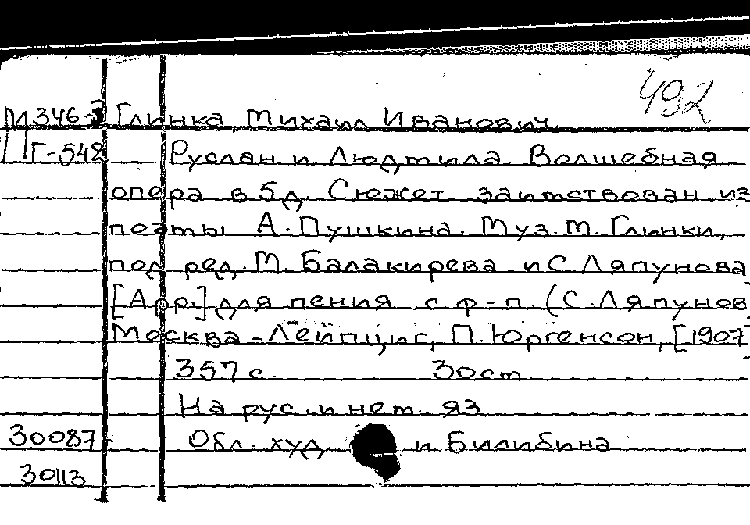 492
М 346-3 Глинка Михаил Иванович
Г-548 Руслан и Людмила. Волшебная
опера в 5д. Сюжет заимствован из
поэмы А. Пушкина. Муз. М. Глинки,
под ред. М. Балакирева и С. Ляпунова
[Арр.] для пения с ф-п. (С. Ляпунов
Москва-Лейпциг, П. Юргенсон, [1907
357 с. 30 ст
На рус. и нем. яз
30087 Обл. худ и Билибина
30113